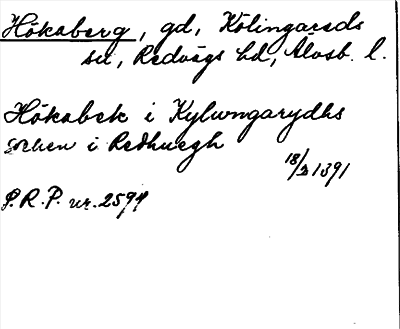 Hökaberg, gd, Kölingareds
sn, Redvägs hd, Älvsb. l.
Hökabek i Kylwngarydhs
soken i Redhwegh
18/3 1391
S.R.P. nr. 2594